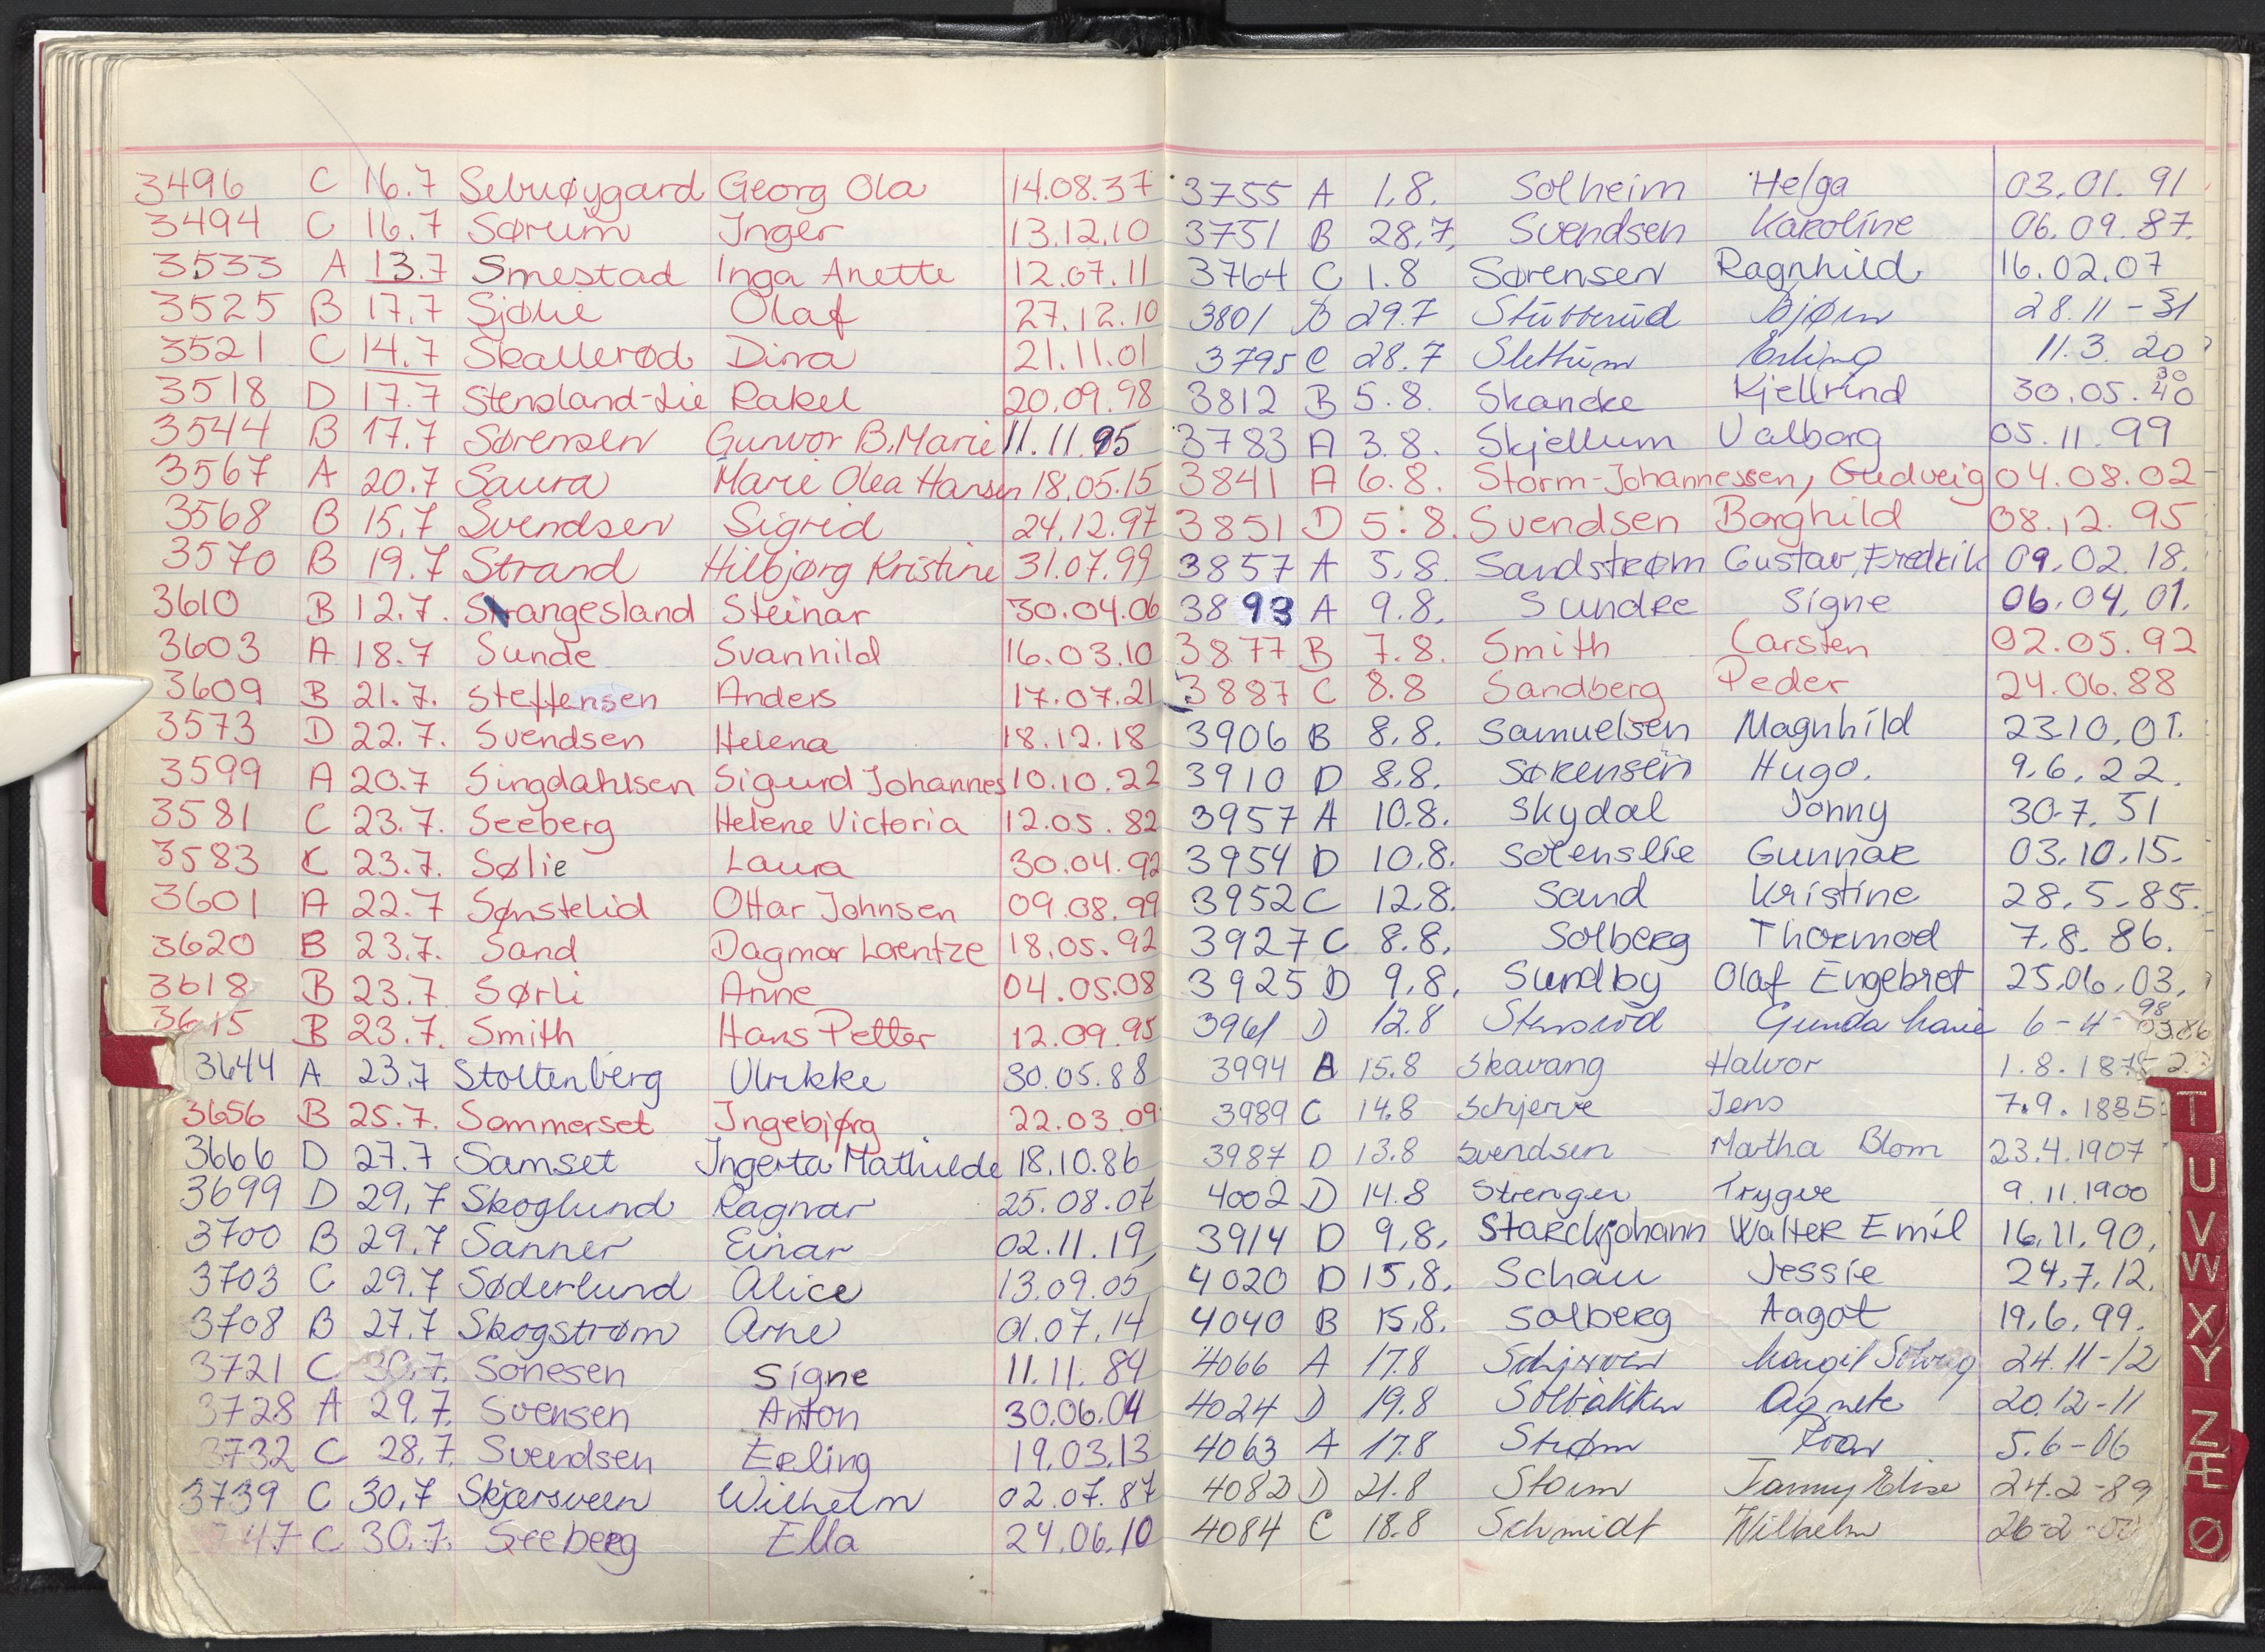 3496 C 16.7 Sebuøygard Georg Ola 14.08.37
3494 C 16.7 Sørum Inger 13.12.10
3533 A 13.7 Smestad Inga Anette 12.07.11
3525 B 17.7 Sjølie Olaf 27.12.10
3521 C 14.7 Skallerød Dina 21.11.01
3518 D 17.7 Stensland-Lie Rakel 20.09.98
3544 B 17.7 Sørensen Gunvor B.Marie 11.11.95
3567 A 20.7 Saura Marie Olea Hansen 18.05.15
3568 B 15.7 Svendsen Sigrid 24.12.97
3570 B 19.7 Strand Hilbjørg Kristine 31.07.99
3610 B 12.7. Strangesland Steinar 30.04.06
3603 A 18.7 Sunde Svanhild 16.03.10
3609 B 21.7. Steffensen Anders 17.07.21
3573 D 22.7. Svendsen Helena 18.12.18
3599 A 20.7 Singdahlsen Sigurd Johannes 10.10.22
3581 C 23.7. Seeberg Helene Victoria 12.05.82
3583 C 23.7. Sølie Laura 30.04.92
3601 A 22.7 Sønstelid Ottar Johnsen 09.08.99
3620 B 23.7. Sand Dagmar Lorentze 18.05.92
3618 B 23.7. Sørli Anne 04.05.08
3615 B 23.7. Smith Hans Petter 12.09.95
3644 A 23.7 Stoltenberg Ulrikke 30.05.88
3656 B 25.7. Sommerset Ingebjørg 22.03.09
3666 D 27.7 Samset Ingerta Mathilde 18.10.86
3699 D 29.7 Skoglund Ragnar 25.08.07
3700 B 29.7 Sanner Einar 02.11.19
3703 C 29.7 Søderlund Alice 13.09.05
3708 B 27.7 Skogstrøm Arne 01.07.14
3721 C 30.7. Sonesen Signe 11.11.84
3728 A 29.7. Svensen Anton 30.06.04
3732 C 28.7. Svendsen Erling 19.03.13
3739 C 30.7 Skjærsveen Wilhelm 02.07.87
747 C 30.7. Seeberg Ella 24.06.10
3755 A 1.8. Solheim Helga 03.01.91
3751 B 28.7. Svendsen Karoline 06.09.87.
3764 C 1.8 Sørensen Ragnhild 16.02.07
3801 B 29.7 Stubberud Bjørn 28.11-31
3795 C 28.7 Slettum Erling 11.3.20
3812 B 5.8. Skancke Kjellrind 30.05.40 30
3783 A 3.8. Skjellum Valborg 05.11.99
3841 A 6.8. Storm-Johannessen, Gudveig 04.08.02
3851 D 5.8. Svendsen Borghild 08.12.95
3857 A 5.8. Sandstrøm Gustav, Fredrik 09.02.18.
3893 A 9.8. Sundre Signe 06.04.01.
3877 B 7.8. Smith Carsten 02.05.92
3887 C 8.8 Sandberg Peder 24.06.88
3906 B 8.8. Samuelsen Magnhild 23.10.01.
3910 D 8.8. Sørensen Hugo. 9.6.22.
3957 A 10.8. Skydal Jonny 30.7.51
3954 D 10.8. Solenslie Gunnar 03.10.15.
3952 C 12.8. Sand Kristine 28.5.85.
3927 C 8.8. Solberg Thormod 7.8.86.
3925 D 9.8. Sundby Olaf Engebret 25.06.03.
3961 D 12.8 Stensrød Gunda Marie 6-4- 98
3994 A 15.8 Skavang Halvor 1.8.187
3989 C 14.8 Schjerve Jens 7.9.1885
3987 D 13.8 Svendsen Martha Blom 23.4.1907
4002 D 14.8 Strenger Trygve 9.11.1900
3914 D 9.8. Starckjohann Walter Emil 16.11.90.
4020 D 15.8. Schau Jessie 24.7.12.
4040 B 15.8. Solberg Aagot 19.6.99.
4066 A 17.8 Schjerven Margit Solveig 24.11-12
4024 D 19.8 Solbakken Agnete 20.12-11
4063 A 17.8 Strøm Roar 5.6-06
4082 D 21.8 Storm Fanny Elise 24.2-89
4084 C 18.8 Schmidt Wilhelm 26-2-
T
U
V
W
X
Y
Z
Æ
Ø